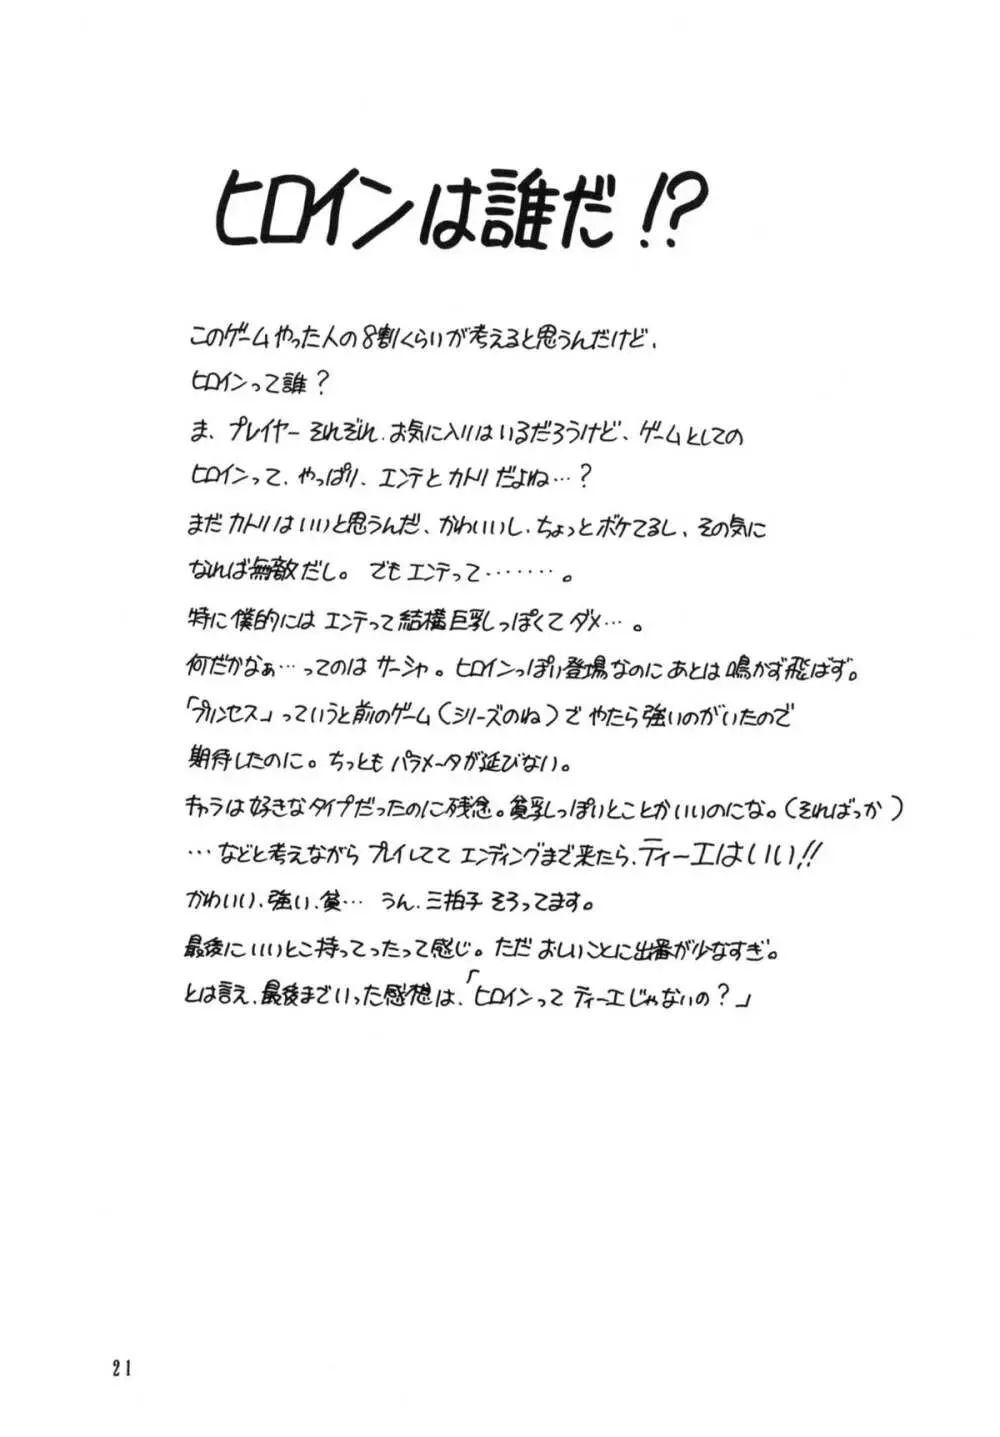 ヒロインは誰だ!?
このゲームやった人の8割くらいが考えると思うんだけど、
ヒロインって誰？
ま、プレイヤーそれぞれ、お気に入りはいるだろうけど、ゲームとしての
ヒロインって、やっぱり、エンテとカトリだよね…？
まだカトリはいいと思うんだ、かわいいし、ちょっとボケてるし、その気に
なれば無敵だし。でもエンテって………。
特に僕的にはエンテって結構巨乳っぽくてダメ…。
何だかなぁ…ってのはサーシャ。ヒロインっぽい登場なのにあとは鳴かず飛ばず。
「プリンセス」っていうと前のゲーム(シリーズのね)でやたら強いのがいたので
期待したのに。ちっともパラメータが延びない。
キャラは好きなタイプだったのに残念。貧乳っぽいとことかいいのにな。(そればっか)
…などと考えながらプレイしててエンディングまで来たら、ティーエはいい!!
かわいい、強い、貧…うん、三拍子そろってます。
最後にいいとこ持ってったって感じ。ただおしいことに出番が少なすぎ。
とは言え、最後までいった感想は、「ヒロインってティーエじゃないの？」
21